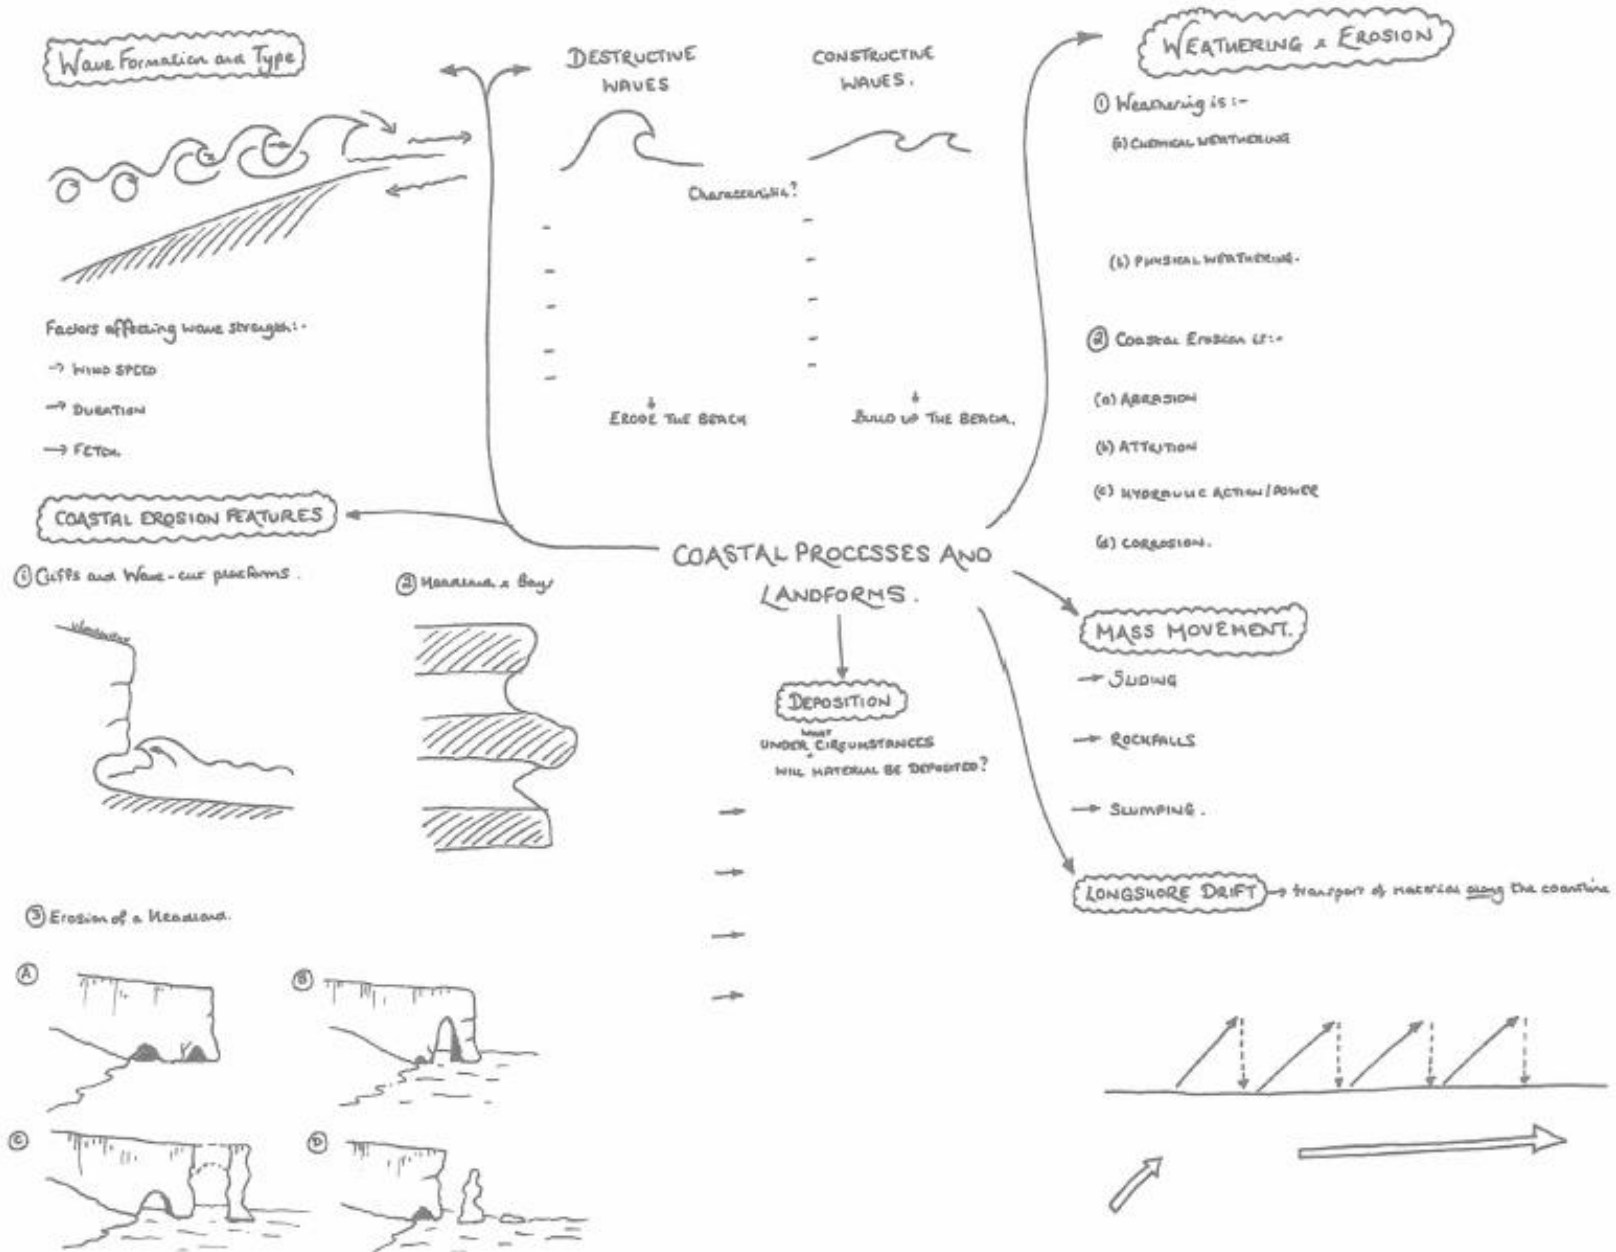 Wave Formation and Type
Factors affecting wave strength:-
→ WIND SPEED
→ DURATION
→ FETCH.
DESTRUCTIVE
WAVES
CONSTRUCTIVE
WAVES.
Characteristic?
-
-
-
-
-
-
-
-
-
-
ERODE THE BEACH
BUILD UP THE BEACH.
WEATHERING & EROSION
① Weathering is:-
(a) CHEMICAL WEATHERING
(b) PHYSICAL WEATHERING.
② Coastal Erosion is:-
(a) ABRASION
(b) ATTRITION
(c) HYDRAULIC ACTION/POWER
(d) CORROSION.
COASTAL EROSION FEATURES
① Cliffs and Wave-cut platforms.
② Headland & Bays
③ Erosion of a Headland.
Ⓐ
Ⓑ
Ⓒ
Ⓓ
COASTAL PROCESSES AND
LANDFORMS.
DEPOSITION
UNDER WHAT CIRCUMSTANCES
WILL MATERIAL BE DEPOSITED?
→
→
→
→
MASS MOVEMENT.
→ SLIDING
→ ROCKFALLS
→ SLUMPING.
LONGSHORE DRIFT → transport of material along the coastline